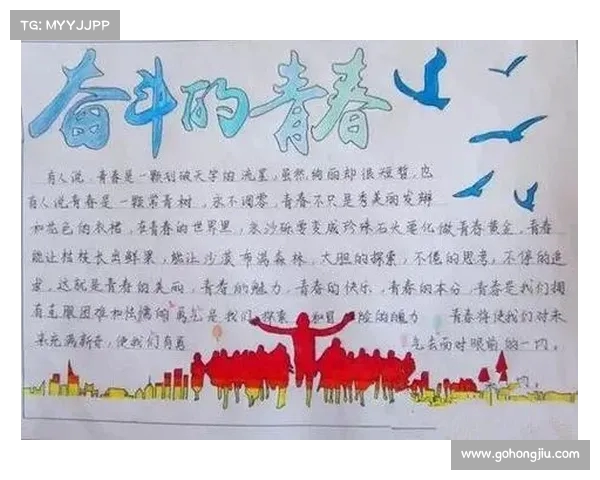 TG: MYYJJPP
奋斗的青春
有人说,青春是一颗划破天宇的流星,虽然绚丽却很短暂,也
有人说青春是一颗常青树,永不凋零,青春不只是秀美的发辫
和花色的衣裙,在青春的世界里,水沙砾要变成珍珠石头要化做青春黄金,青春
能让枯枝长出鲜果,能让沙漠布满森林,大胆的探索,不倦的思考,不停的追
求,这就是青春的美丽,青春的魅力,青春的快乐,青春的本分,青春是我们拥
有克服困难和怯懦的勇气是我们探索和冒险的魄力 青春将使我们对未
来充满新奇,使我们有 气去面对眼前的一切。
www.gohongjiu.com